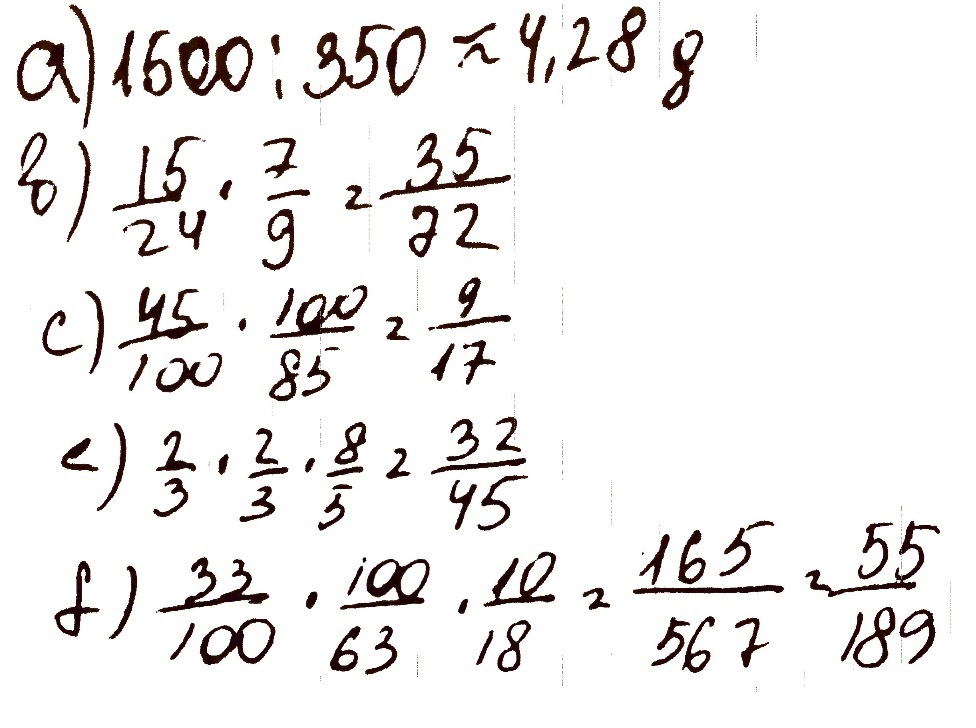 a) 1500 : 350 ≈ 4,28 g
b) 15/24 · 7/9 = 35/72
c) 45/100 · 100/85 = 9/17
e) 2/3 · 2/3 · 8/5 = 32/45
f) 33/100 · 100/63 · 10/18 = 165/567 = 55/189